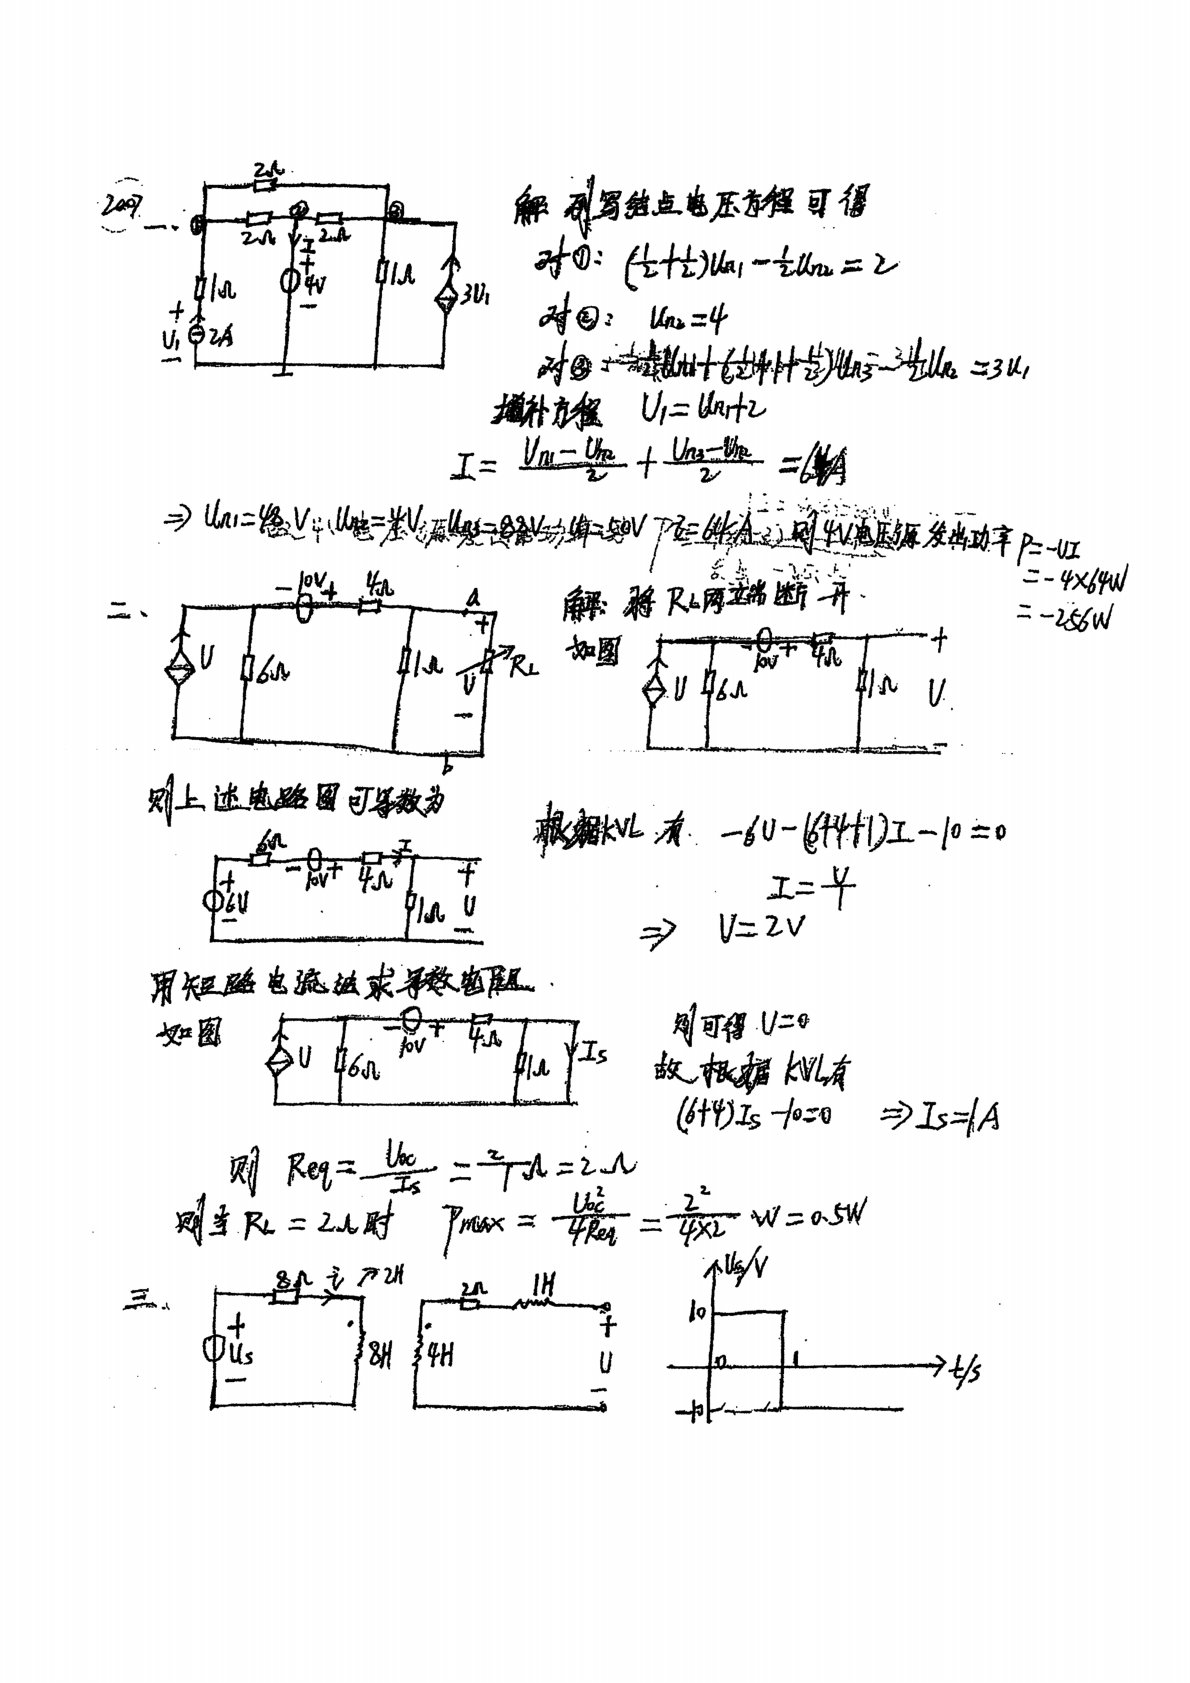 2007
一、
2Ω
① 2Ω ② 2Ω ③
I
1Ω + 4V − 1Ω 3U₁
+ U₁ − 2A
解 列写结点电压方程可得
对①: (1/2+1/2)Un1 − 1/2Un2 = 2
对②: Un2 = 4
对③:
= 3U₁
增补方程 U₁ = Un1+2
I = (Un1−Un2)/2 + (Un3−Un2)/2 =
⇒ Un1=48V Un2=4V 则4V电压源发出功率 P=−UI
= −4×64W
= −256W
二、
− 10V + 4Ω a
U 6Ω 1Ω + U − RL
b
解: 将RL两端断开
如图
− 10V + 4Ω +
U 6Ω 1Ω U
−
则上述电路图可等效为
6Ω − 10V + 4Ω I +
+ 6U − 1Ω U
−
根据KVL有 −6U−(6+4+1)I−10=0
I = U/1
⇒ U=2V
用短路电流法求等效电阻.
如图
− 10V + 4Ω
U 6Ω 1Ω Is
则可得 U=0
故根据KVL有
(6+4)Is−10=0 ⇒ Is=1A
则 Req = Uoc/Is = 2/1 Ω = 2Ω
则当 RL = 2Ω时 Pmax = Uoc²/4Req = 2²/4×2 W = 0.5W
三、
8Ω i 2H
+ Us − 8H
2Ω 1H
4H + U −
Us/V
10
0 1 t/s
−10